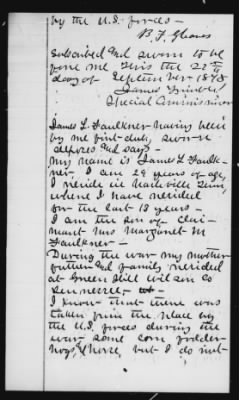 by the U.S. forces –
B. F. Gleaves
Subscribed and sworn to be
fore me this the 22nd
day of September 1878
James Trimble
Special Commissioner
James L. Faulkner having been
by me first duly sworn
deposes and says –
My name is James L. Faulk-
ner, I am 29 years of age,
I reside in Nashville Tenn,
where I have resided
for the last 13 years –
I am the son of Clai-
mant Mrs Margaret M
Faulkner –
During the war my mother
father and family resided
at Green Hill Wilson Co
Tennessee –
I know that there was
taken from the place by
the U.S. forces during the
war some corn fodder
hogs & horse, but I do not